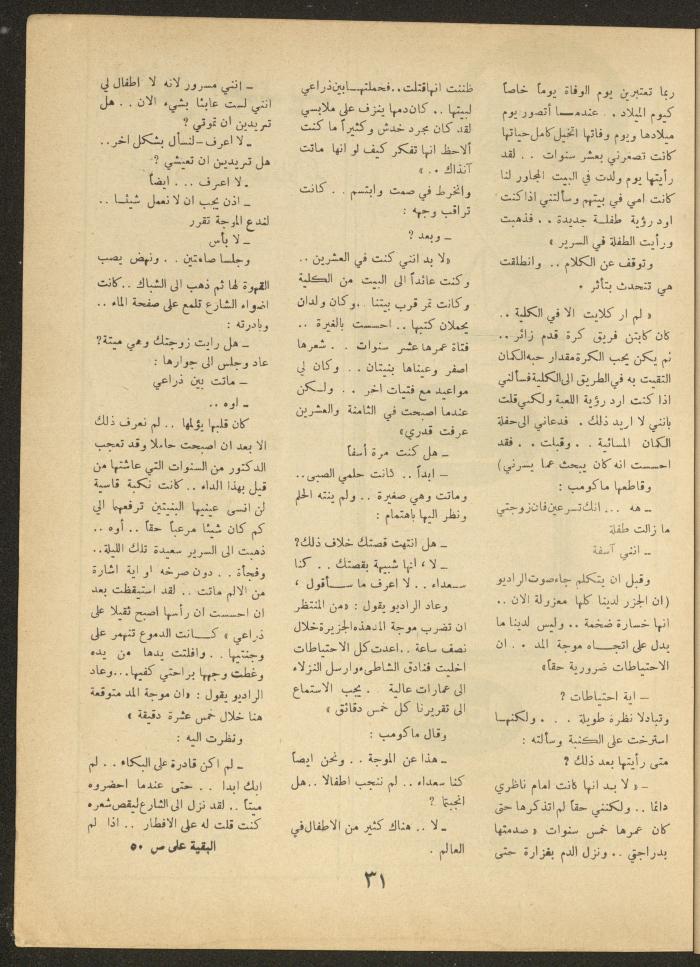 ربما تعتبرين يوم الوفاة يوماً خاصاً
كيوم الميلاد . . عندمــا أتصور يوم
ميلادها ويوم وفاتها اتخيل كامل حياتها
كانت تصغرني بعشر سنوات . . لقد
رأيتها يوم ولدت في البيت المجاور لنا
كانت امي في بيتهم وسألتني اذا كنت
اود رؤية طفلــة جديدة . . فذهبت
ورأيت الطفلة في السرير »
وتوقف عن الكلام . . وانطلقت
هي تتحدث بتأثر .
« لم ار كلايت الا في الكلية . .
كان كابتن فريق كرة قدم زائر . .
لم يكن يحب الكرة مقدار حبه المكان
التقيت به في الطريق الى الكلية فسألني
اذا كنت ارد رؤية اللعبة ولكني قلت
بانني لا اريد ذلك . فدعاني الى حفلة
المكان المسائية . . وقبلت . . فقد
احسست انه كان يبحث عما يسرني)
وقاطعها ماكومب :
ــ هه ... انك تسرعين فان زوجتي
ما زالت طفلة
ــ انني آسفة
وقبل ان يتكلم جاء صوت الراديو
(ان الجزر لدينا كلها معزولة الان . .
انها خسارة ضخمة . . وليس لدينا ما
يدل على اتجــاه موجة المد . . ان
الاحتياطات ضرورية حقاً»
ــ اية احتياطات ?
وتبادلا نظرة طويلة . . . ولكنهــا
استرخت على الكنبة وسألته :
متى رأيتها بعد ذلك ?
ــ « لا بــد انها كانت امام ناظري
دائما . . ولكنني حقاً لم اتذكرها حتى
كان عمرها خمس سنوات « صدمتها
بدراجتي . . ونزل الدم بغزارة حتى
ظننت انها قتلت . . فحملتهــا بين ذراعي
لبيتها . . كان دمها ينزف على ملابسي
لقد كان مجرد خدش وكثيراً ما كنت
ألاحظ انها تفكر كيف لو انها ماتت
آنذاك . »
وانخرط في صمت وابتسم . . كانت
تراقب وجهه :
ــ وبعد ?
«لا بد انني كنت في العشرين . .
وكنت عائداً الى البيت من الكلية
وكانت تمر قرب بيتنا . .وكان ولدان
يحملان كتبها . . احسست بالغيرة . .
فتاة عمرها عشر سنوات . . شعرها
اصفر وعيناها بنيتان . . وكان لي
مواعيد مع فتيات اخر . . ولــكن
عندما اصبحت في الثامنة والعشرين
عرفت قدري»
ــ هل كنت مرة آسفاً
ــ ابداً . . كانت حلمي الصبى . .
وماتت وهي صغيرة . . ولم ينته الحلم
ونظر اليها باهتمام :
ــ هل انتهت قصتك خلاف ذلك?
ــ لا ، انها شبيهة بقصتك . . كنا
سعداء . . لا اعرف ما ســأقول ،
وعاد الراديو يقول : «من المنتظر
ان تضرب موجة المد هذه الجزيرة خلال
نصف ساعة . . اعدت كل الاحتياطات
اخليت فنادق الشاطىء وارسل النزلاء
الى عمارات عالية . . يجب الاستماع
الى تقريرنا كل خمس دقائق »
وقال ماكومب :
ــ هذا عن الموجة . . ونحن ايضاً
كنا سعداء . . لم ننجب اطفالا . . هل
انجبتما ?
ــ لا . . هناك كثير من الاطفال في
العالم .
ــ انني مسرور لانه لا اطفال لي
انني لست عابئا بشيء الان . . هل
تريدين ان تموتي ?
ــ لا اعرف – لنسأل بشكل اخر . .
هل تريدين ان تعيشي ?
ــ لا اعرف . . . ايضاً
ــ اذن يجب ان لا نعمل شيئــا . .
لندع الموجة تقرر
ــ لا بأس
وجلسا صامتين . . ونهض يصب
القهوة لها ثم ذهب الى الشباك . . كانت
اضواء الشارع تلمع على صفحة الماء . .
وبادرته :
ــ هل رايت زوجتك وهي ميتة?
عاد وجلس الى جوارها :
ــ ماتت بين ذراعي
ــ اوه . .
كان قلبها يؤلمها . . لم نعرف ذلك
الا بعد ان اصبحت حاملا وقد تعجب
الدكتور من السنوات التي عاشتها من
قبل بهذا الداء . . كانت نكبة قاسية
لن انسى عينيها البنيتين ترفعهما الى
كم كان شيئا مرعباً حقاً . . أوه . .
ذهبت الى السرير سعيدة تلك الليلة . .
وفجأة . . دون صرخه او اية اشارة
من الالم ماتت . . لقد استيقظت بعد
ان احسست ان رأسها اصبح ثقيلا على
ذراعي » كــانت الدموع تنهمر على
وجنتيها . . وافلتت يدها من يده
وغطت وجهها براحتي كفيها...وعاد
الراديو يقول : «ان موجة المد متوقعة
هنا خلال خمس عشرة دقيقة »
ونظرت اليه :
ــ لم اكن قادرة على البكاء . . لم
ابك ابدا . . حتى عندما احضروه
ميتاً . . لقد نزل الى الشارع ليقص شعره
كنت قلت له على الافطار . . اذا لم
البقية على ص ٥٠
٣١